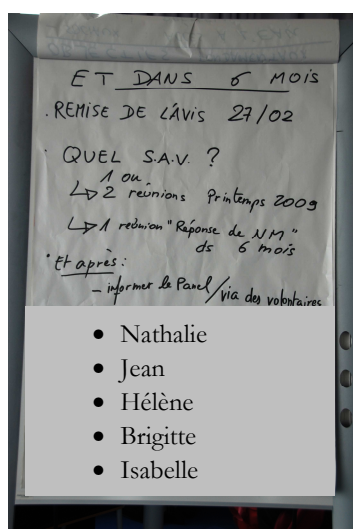 ET DANS 6 MOIS
. REMISE DE L'AVIS 27/02
. QUEL S.A.V. ?
1 ou
↳ 2 reunions Printemps 2009
↳ 1 reunion "Réponse de NM"
ds 6 mois
• Et après :
- informer le Panel / via des volontaires
• Nathalie
• Jean
• Hélène
• Brigitte
• Isabelle